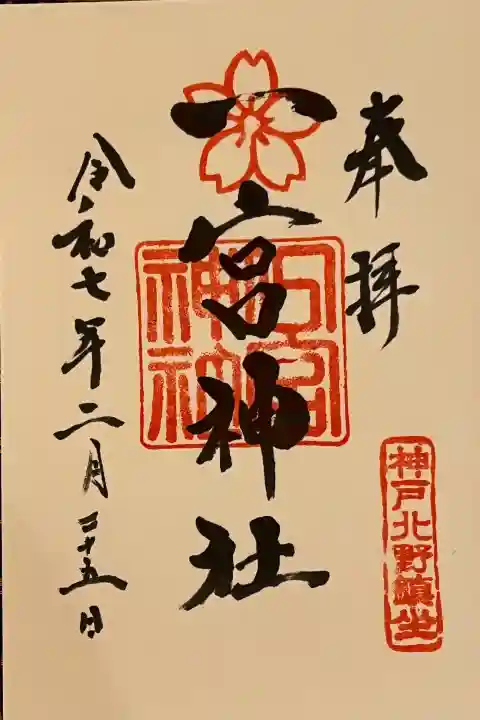 奉拝
一宮神社
一宮神社
令和七年二月二十五日
神戸北野鎮坐